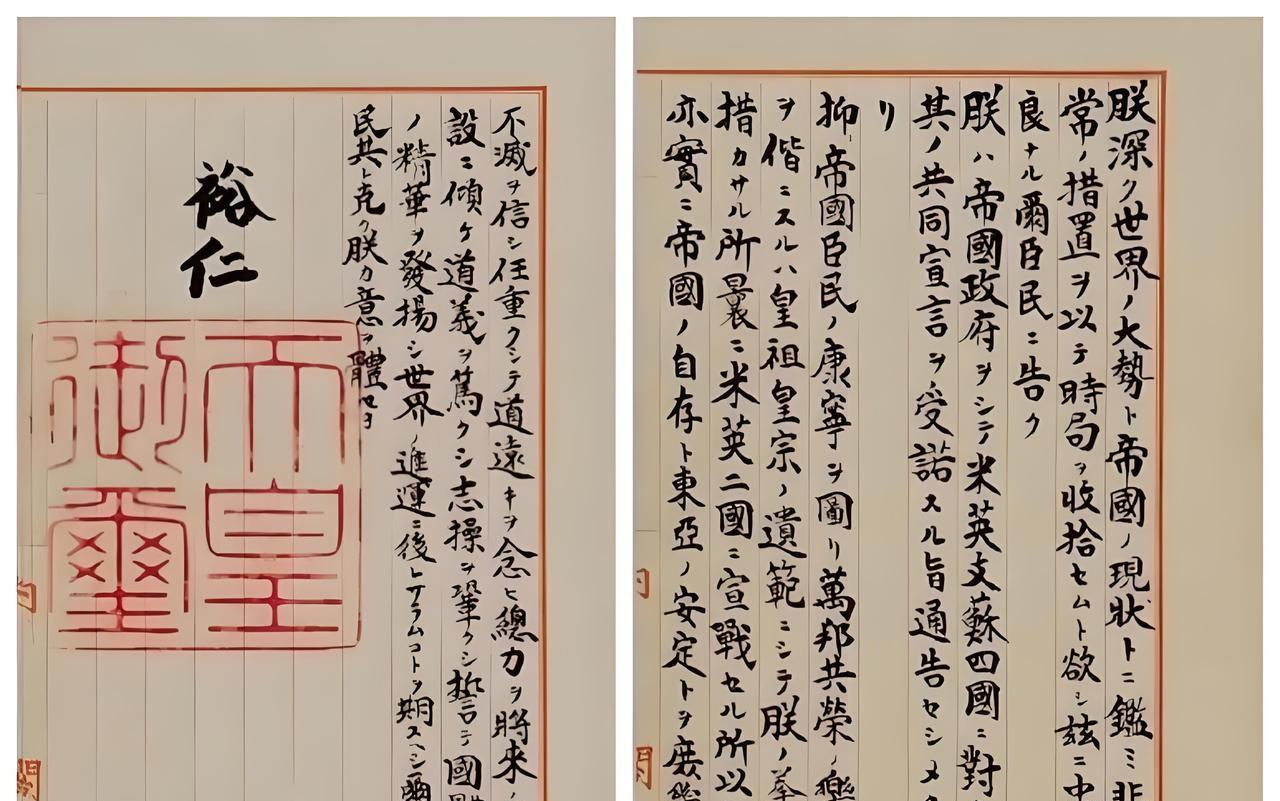 朕深ク世界ノ大勢ト帝國ノ現狀トニ鑑ミ非
常ノ措置ヲ以テ時局ヲ收拾セムト欲シ茲ニ
良ナル爾臣民ニ告ク
朕ハ帝國政府ヲシテ米英支蘇四國ニ對
其ノ共同宣言ヲ受諾スル旨通告セシメタ
リ
抑帝國臣民ノ康寧ヲ圖リ萬邦共榮ノ樂
ヲ偕ニスルハ皇祖皇宗ノ遺範ニシテ朕ノ拳
措カサル所曩ニ米英二國ニ宣戰セル所以
亦實ニ帝國ノ自存ト東亞ノ安定トヲ庶幾
不滅ヲ信シ任重クシテ道遠キヲ念ヒ總力ヲ將來ノ
設ニ傾ケ道義ヲ篤クシ志操ヲ鞏クシ誓テ國體
ノ精華ヲ發揚シ世界ノ進運ニ後レサラムコトヲ期スヘシ爾
民其レ克ク朕カ意ヲ體セヨ
裕仁
天皇
御璽